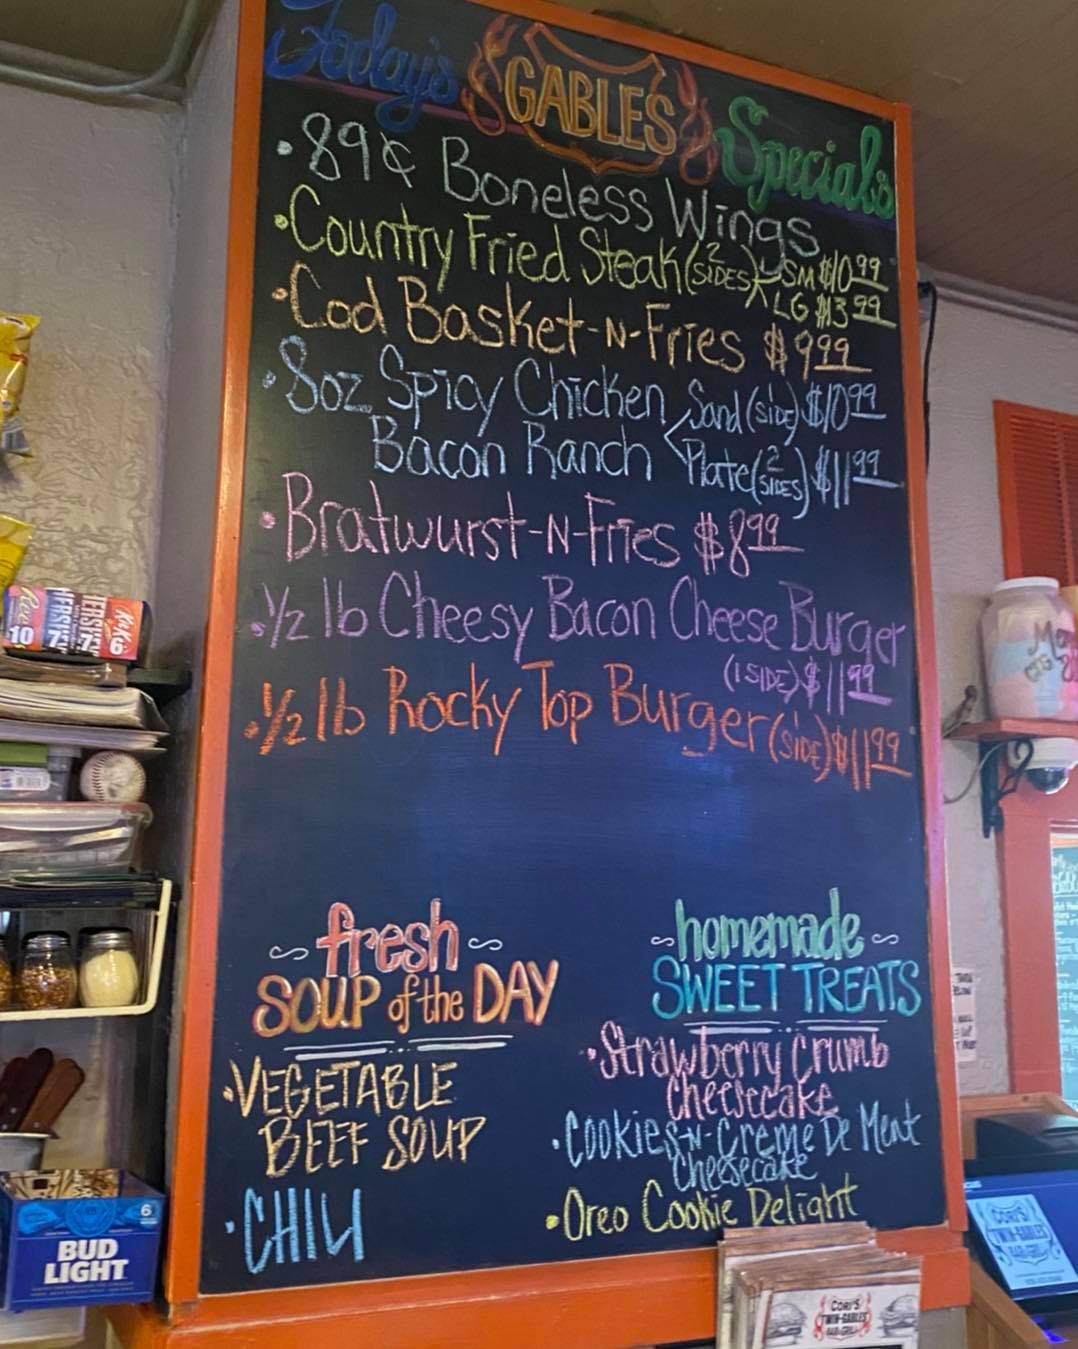 Today's GABLES Specials
• 89¢ Boneless Wings
• Country Fried Steak (2 SIDES) SM $10.99
LG $13.99
• Cod Basket-N-Fries $9.99
• 8oz Spicy Chicken Sand (SIDE) $10.99
Bacon Ranch Plate (2 SIDES) $11.99
• Bratwurst-N-Fries $8.99
• 1/2 lb Cheesy Bacon Cheese Burger
(1 SIDE) $11.99
• 1/2 lb Rocky Top Burger (SIDE) $11.99
~ fresh ~
SOUP of the DAY
• VEGETABLE
BEEF SOUP
• CHILI
~ homemade ~
SWEET TREATS
• Strawberry Crumb
Cheesecake
• Cookies-N-Creme De Ment
Cheesecake
• Oreo Cookie Delight
10
HERSHEY
7
7
KitKat
6
6
BUD
LIGHT
CORI'S
TWIN-GABLES
BAR & GRILL
CORI'S
TWIN-GABLES
BAR & GRILL